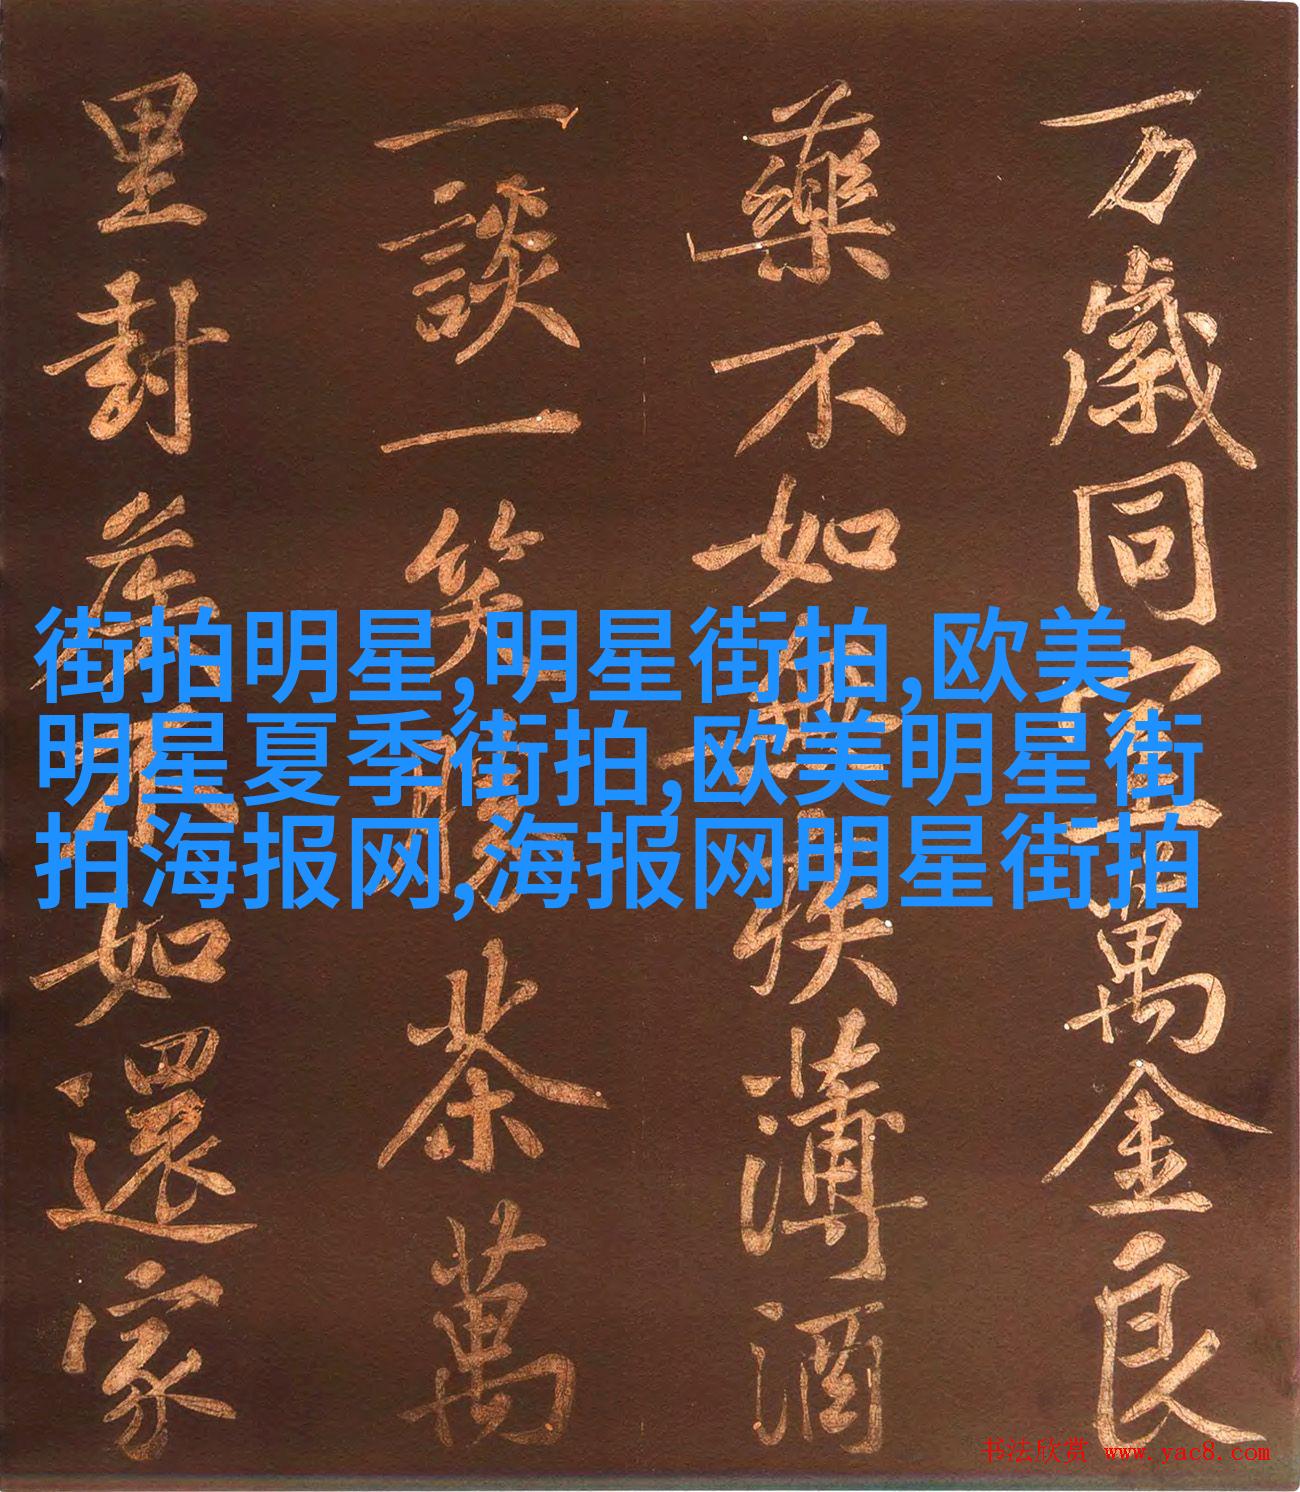 万歲同室萬金良
藥不如無疾薄酒
一談一笑勝茶萬
里封侯不如還家
街拍明星,明星街拍,欧美
明星夏季街拍,欧美明星街
拍海报网,海报网明星街拍
书法欣赏 www.yac8.com